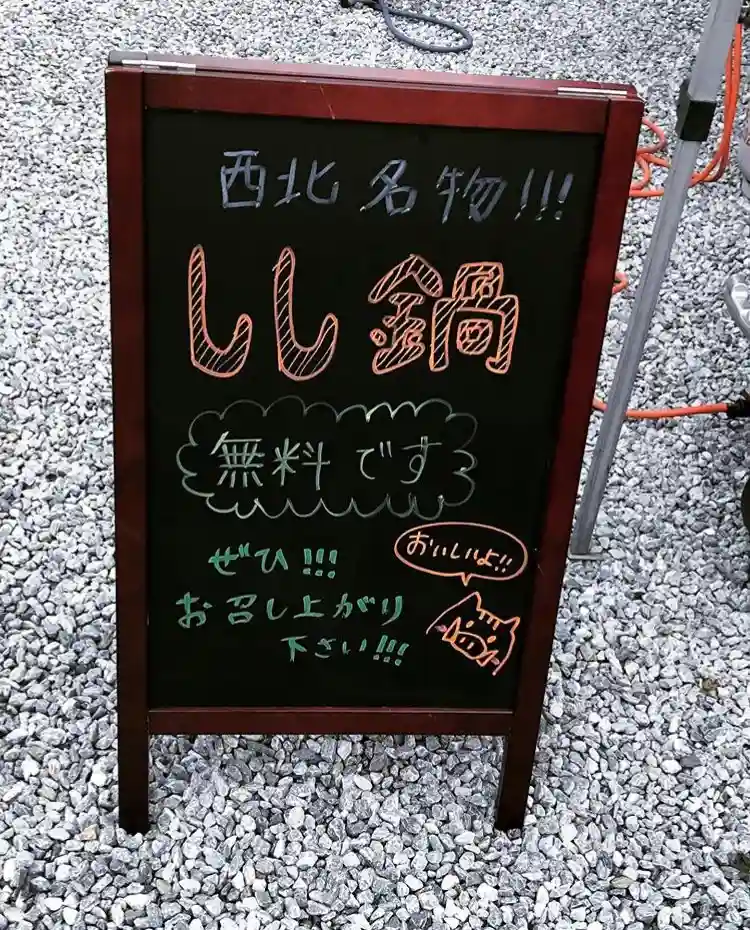 西北 名物!!!
しし鍋
無料です
ぜひ!!!
おいしいよ!!
お召し上がり
下さい!!!